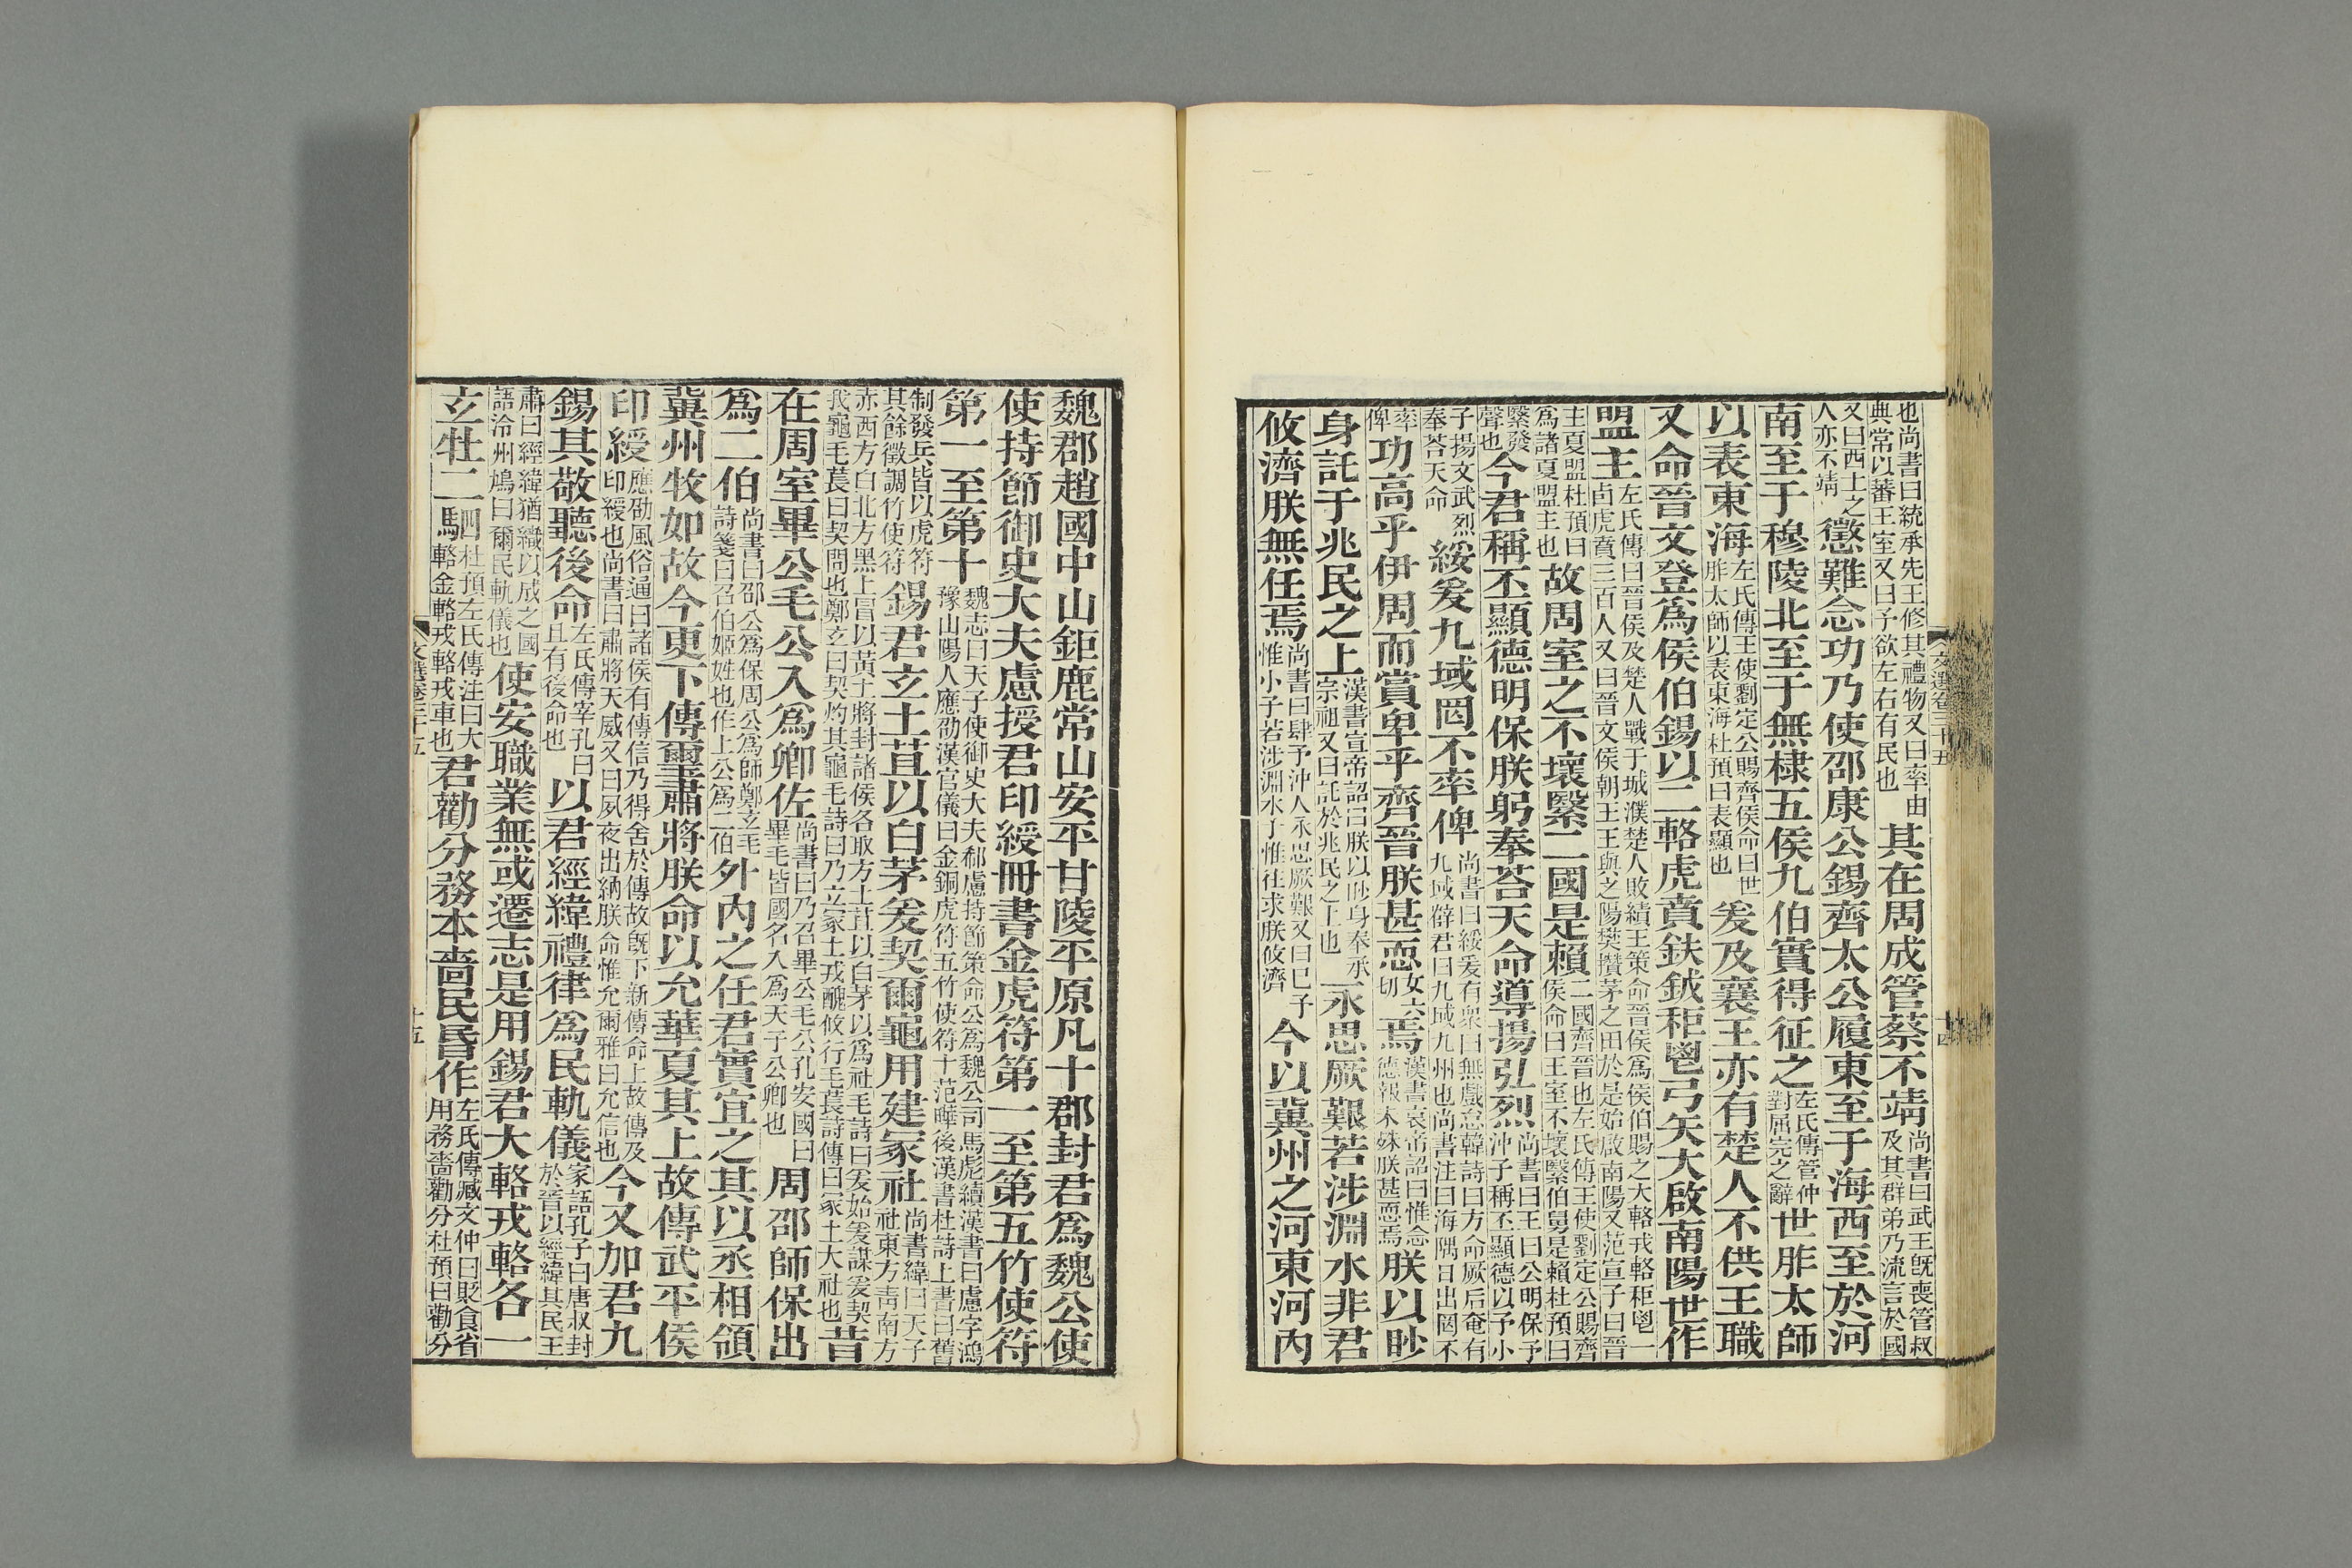 也尚書曰統承先王修其禮物又曰率由典常以蕃王室又曰予欲左右有民也其在周成管蔡不靖尚書曰武王既喪管叔及其群弟乃流言於國
又曰西土之人亦不靖懲難念功乃使邵康公錫齊太公履東至于海西至於河
南至于穆陵北至于無棣五侯九伯實得征之左氏傳管仲對屈完之辭世胙太師
以表東海左氏傳王使劉定公賜齊侯命曰世胙太師以表東海杜預曰表顯也爰及襄王亦有楚人不供王職
又命晉文登為侯伯錫以二輅虎賁鈇鉞秬鬯弓矢大啟南陽世作
盟主左氏傳曰晉侯及楚人戰于城濮楚人敗績王策命晉侯為侯伯賜之大輅戎輅秬鬯一卣虎賁三百人又曰晉文侯朝王王與之陽樊攢茅之田於是始啟南陽又范宣子曰晉
主夏盟杜預曰為諸夏盟主也故周室之不壞繄二國是賴二國齊晉也左氏傳王使劉定公賜齊侯命曰王室不壞繄伯舅是賴杜預曰
繄發聲也今君稱丕顯德明保朕躬奉荅天命導揚弘烈尚書曰王曰公明保予沖子稱丕顯德以予小
子揚文武烈奉荅天命綏爰九域罔不率俾尚書曰綏爰有眾曰無戲怠韓詩曰方命厥后奄有九域薛君曰九域九州也尚書注曰海隅日出罔不
率俾功高乎伊周而賞卑乎齊晉朕甚恧女六切焉漢書哀帝詔曰惟念德報未殊朕甚恧焉朕以眇
身託于兆民之上漢書宣帝詔曰朕以眇身奉承宗祖又曰託於兆民之上也永思厥艱若涉淵水非君
攸濟朕無任焉尚書曰肆予沖人永思厥艱又曰已予惟小子若涉淵水予惟往求朕攸濟今以冀州之河東河內
魏郡趙國中山鉅鹿常山安平甘陵平原凡十郡封君為魏公使
使持節御史大夫慮授君印綬冊書金虎符第一至第五竹使符
第一至第十魏志曰天子使御史大夫郗慮持節策命公為魏公司馬彪續漢書曰慮字鴻豫山陽人應劭漢官儀曰金銅虎符五竹使符十范曄後漢書杜詩上書曰舊
制發兵皆以虎符其餘徵調竹使符錫君玄土苴以白茅爰契爾龜用建冢社尚書緯曰天子社東方青南方
赤西方白北方黑上冒以黃土將封諸侯各取方土苴以白茅以為社毛詩曰爰始爰謀爰契我龜毛萇曰契問也鄭玄曰契灼其龜毛詩曰乃立冢土戎醜攸行毛萇詩傳曰冢土大社也昔
在周室畢公毛公入為卿佐尚書曰乃召畢公毛公孔安國曰畢毛皆國名入為天子公卿也周邵師保出
為二伯尚書曰邵公為保周公為師鄭玄毛詩箋曰召伯姬姓也作上公為二伯外內之任君實宜之其以丞相領
冀州牧如故今更下傳璽肅將朕命以允華夏其上故傳武平侯
印綬應劭風俗通曰諸侯有傳信乃得舍於傳故既下新傳命上故傳及印綬也尚書曰肅將天威又曰夙夜出納朕命惟允爾雅曰允信也今又加君九
錫其敬聽後命左氏傳宰孔曰且有後命也以君經緯禮律為民軌儀家語孔子曰唐叔封於晉以經緯其民王
肅曰經緯猶織以成之國語泠州鳩曰爾民軌儀也使安職業無或遷志是用錫君大輅戎輅各一
玄牡二駟杜預左氏傳注曰大輅金輅戎輅戎車也君勸分務本嗇民昬作左氏傳臧文仲曰貶食省用務嗇勸分杜預曰勸分
文選卷三十五
十四
文選卷三十五
十五